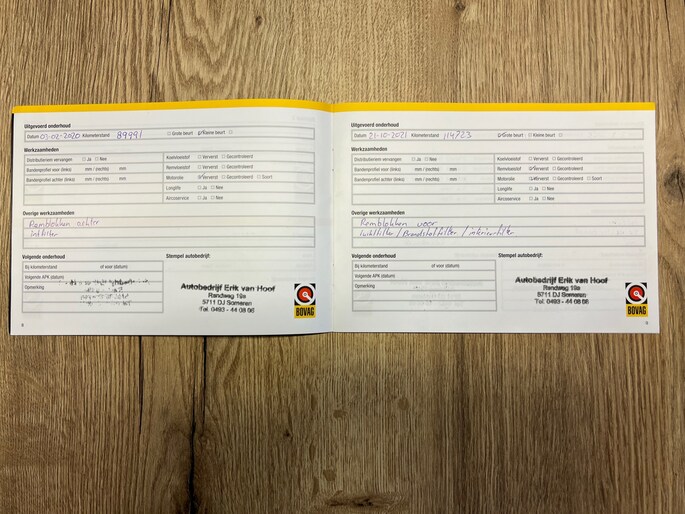 Uitgevoerd onderhoud
Datum 03-02-2020 Kilometerstand 89991 Grote beurt Kleine beurt
Werkzaamheden
Distributieriem vervangen Ja Nee
Bandenprofiel voor (links) mm / (rechts) mm
Bandenprofiel achter (links) mm / (rechts) mm
Koelvloeistof Ververst Gecontroleerd
Remvloeistof Ververst Gecontroleerd
Motorolie Ververst Gecontroleerd Soort
Longlife Ja Nee
Aircoservice Ja Nee
Overige werkzaamheden
Remblokken achter
intfilter
Volgende onderhoud
Bij kilometerstand of voor (datum)
Volgende APK (datum)
Opmerking
Stempel autobedrijf:
Autobedrijf Erik van Hoof
Randweg 19a
5711 DJ Someren
Tel. 0493 - 44 08 66
BOVAG
8
Uitgevoerd onderhoud
Datum 25-10-2021 Kilometerstand 114723 Grote beurt Kleine beurt
Werkzaamheden
Distributieriem vervangen Ja Nee
Bandenprofiel voor (links) mm / (rechts) mm
Bandenprofiel achter (links) mm / (rechts) mm
Koelvloeistof Ververst Gecontroleerd
Remvloeistof Ververst Gecontroleerd
Motorolie Ververst Gecontroleerd Soort
Longlife Ja Nee
Aircoservice Ja Nee
Overige werkzaamheden
Remblokken voor
luchtfilter / Brandstoffilter / interieurfilter
Volgende onderhoud
Bij kilometerstand of voor (datum)
Volgende APK (datum)
Opmerking
Stempel autobedrijf:
Autobedrijf Erik van Hoof
Randweg 19a
5711 DJ Someren
Tel. 0493 - 44 08 66
BOVAG
9